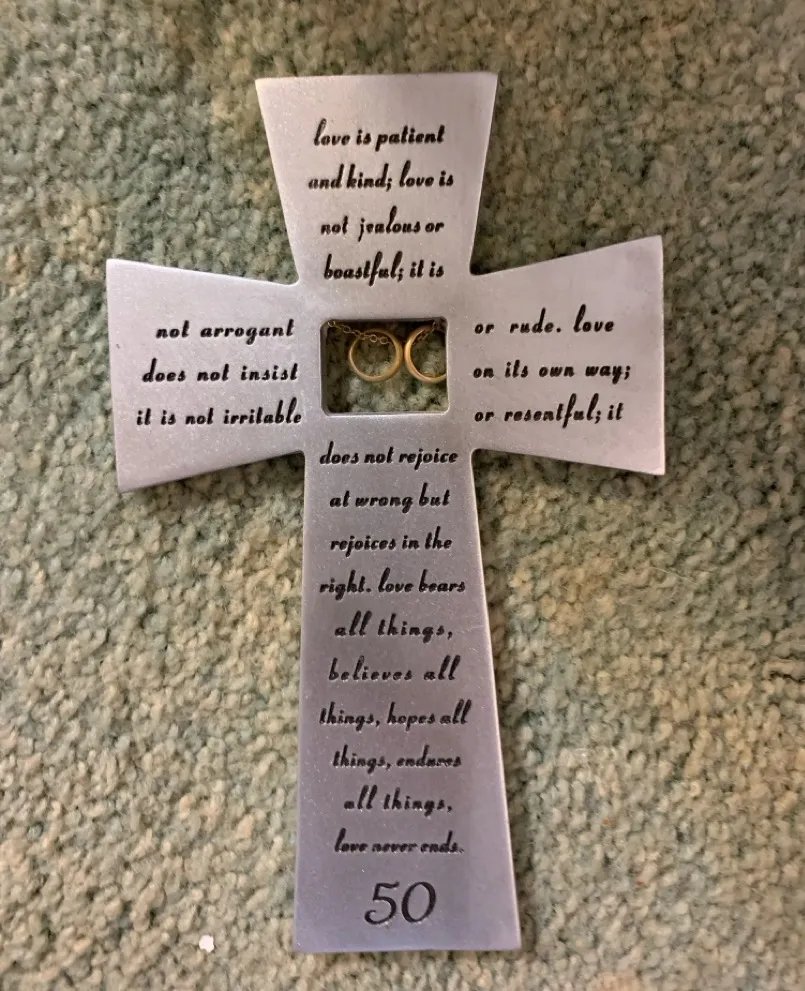 love is patient
and kind; love is
not jealous or
boastful; it is
not arrogant or rude. love
does not insist on its own way;
it is not irritable or resentful; it
does not rejoice
at wrong but
rejoices in the
right. love bears
all things,
believes all
things, hopes all
things, endures
all things,
love never ends.
50